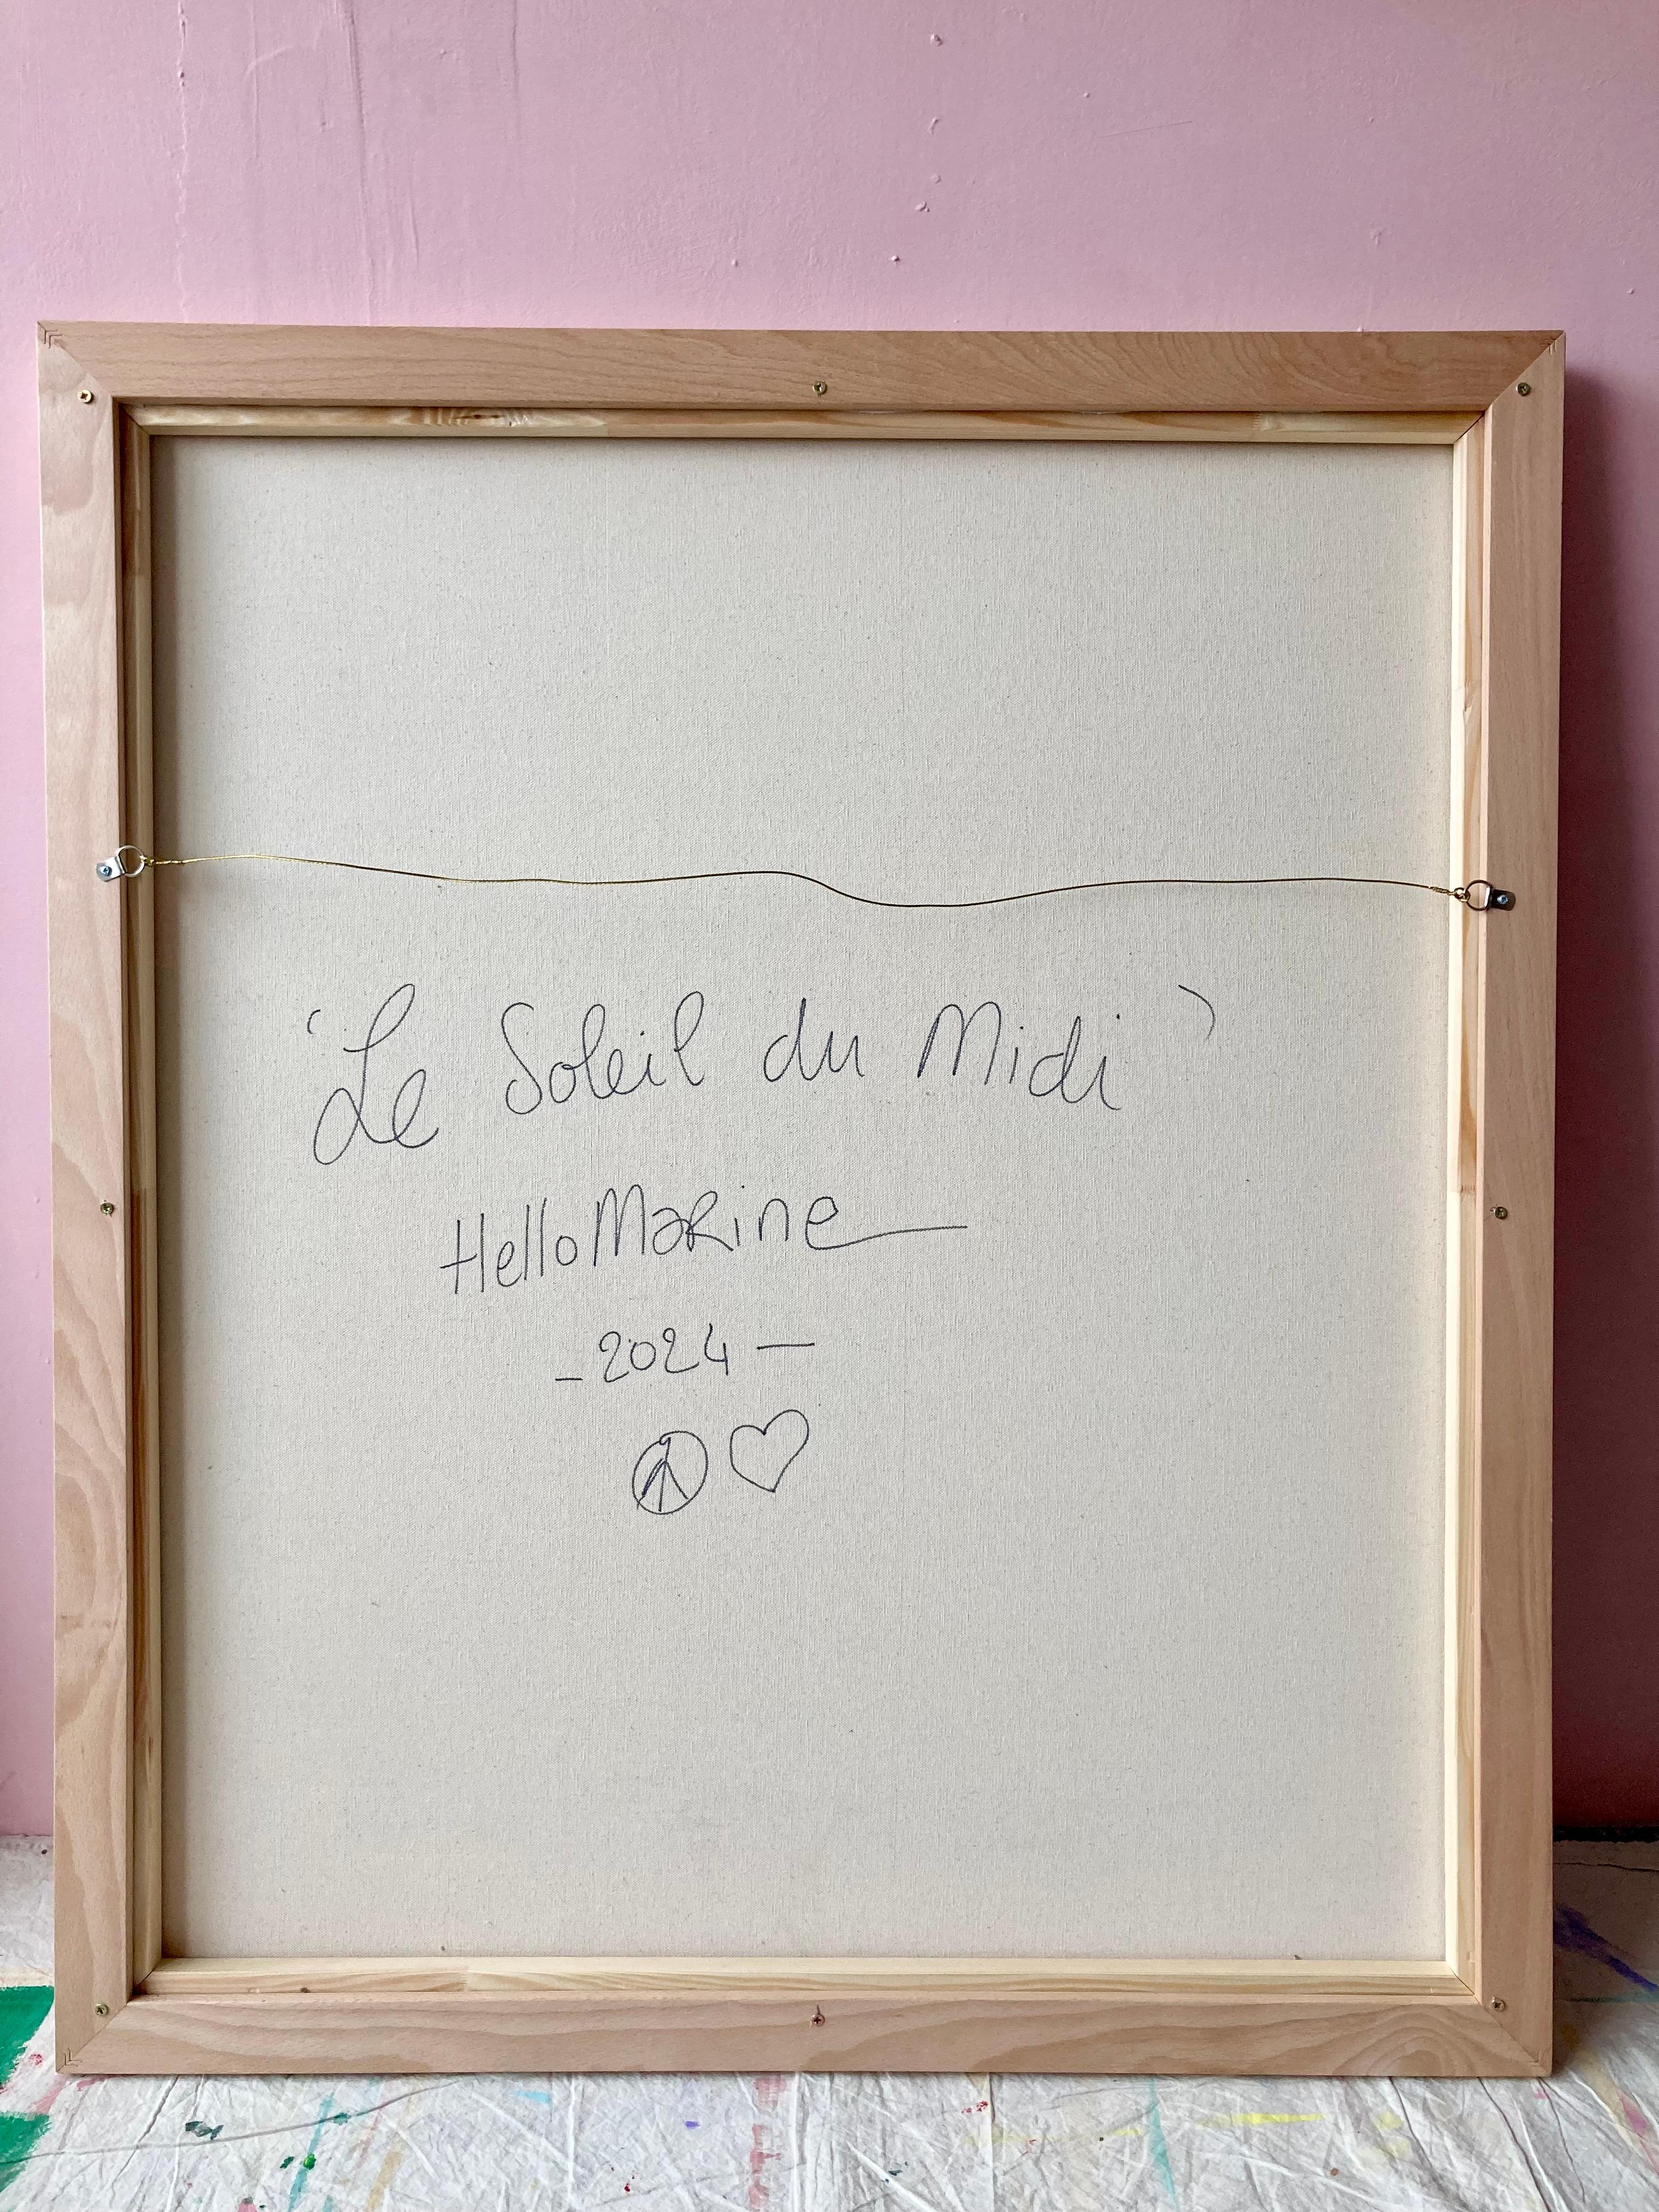 'Le Soleil du Midi'
HelloMarine
- 2024 -